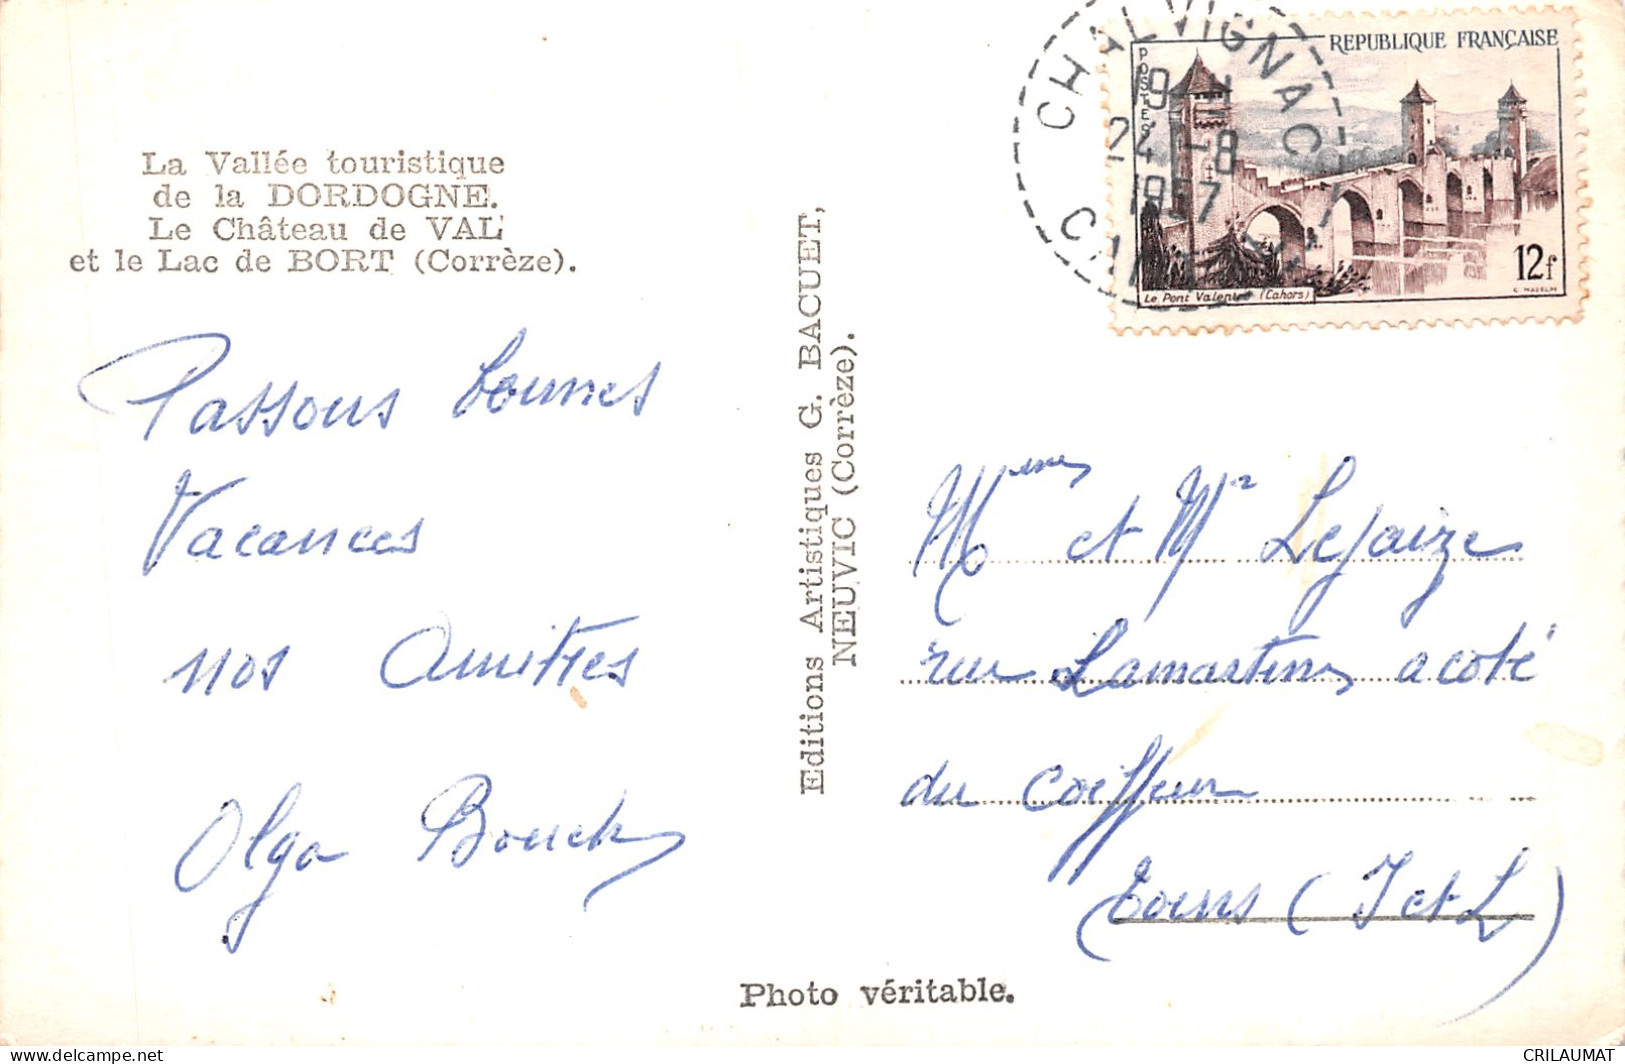 La Vallée touristique
de la DORDOGNE.
Le Château de VAL
et le Lac de BORT (Corrèze).
Passons bonnes
Vacances
nos Amitiés
Olga
Editions Artistiques G. BACUET,
NEUVIC (Corrèze).
Photo véritable.
CHALVIGNAC
19
24 -8
1957
CANTAL
REPUBLIQUE FRANÇAISE
POSTES
12f
Le Pont Valentré (Cahors)
C. MAZELIN
Mmes et Mr Lejaize
rue Lamartine a coté
du coiffeur
Tours (I et L)
www.delcampe.net
CRILAUMAT